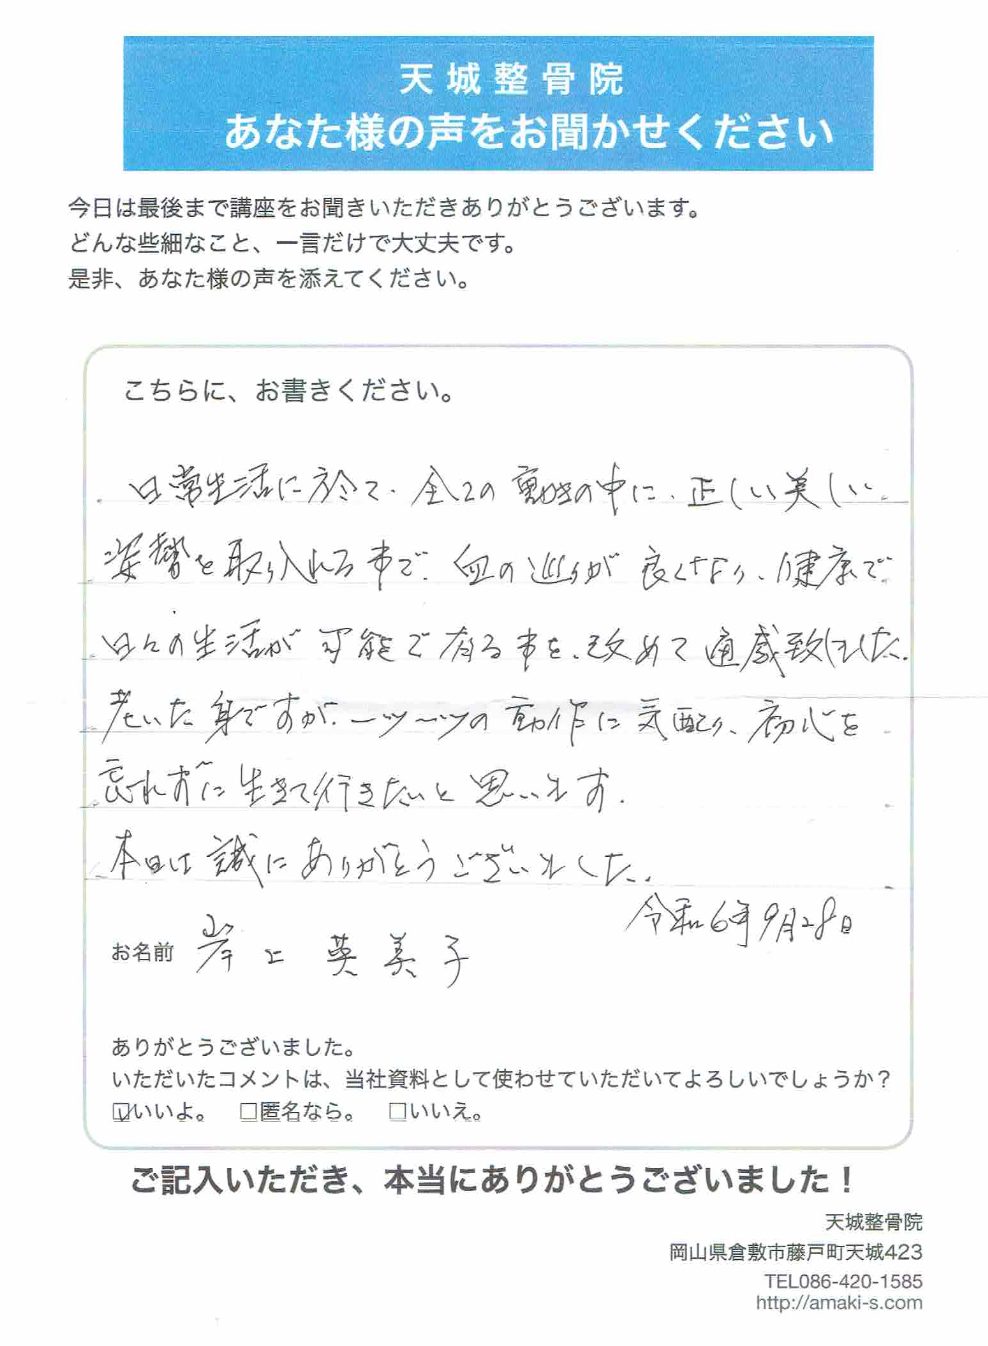 天城整骨院
あなた様の声をお聞かせください
今日は最後まで講座をお聞きいただきありがとうございます。
どんな些細なこと、一言だけで大丈夫です。
是非、あなた様の声を添えてください。
こちらに、お書きください。
日常生活に於て、全ての動きの中に、正しい美しい
姿勢を取り入れる事で、血の巡りが良くなり、健康で
日々の生活が可能で有る事を、改めて通感致しました。
老いた身ですが、一ツ一ツの動作に気配り、初心を
忘れずに生きて行きたいと思います。
本日は誠にありがとうございました。
令和6年9月28日
お名前 岸上英美子
ありがとうございました。
いただいたコメントは、当社資料として使わせていただいてよろしいでしょうか?
☑いいよ。 □匿名なら。 □いいえ。
ご記入いただき、本当にありがとうございました！
天城整骨院
岡山県倉敷市藤戸町天城423
TEL086-420-1585
http://amaki-s.com